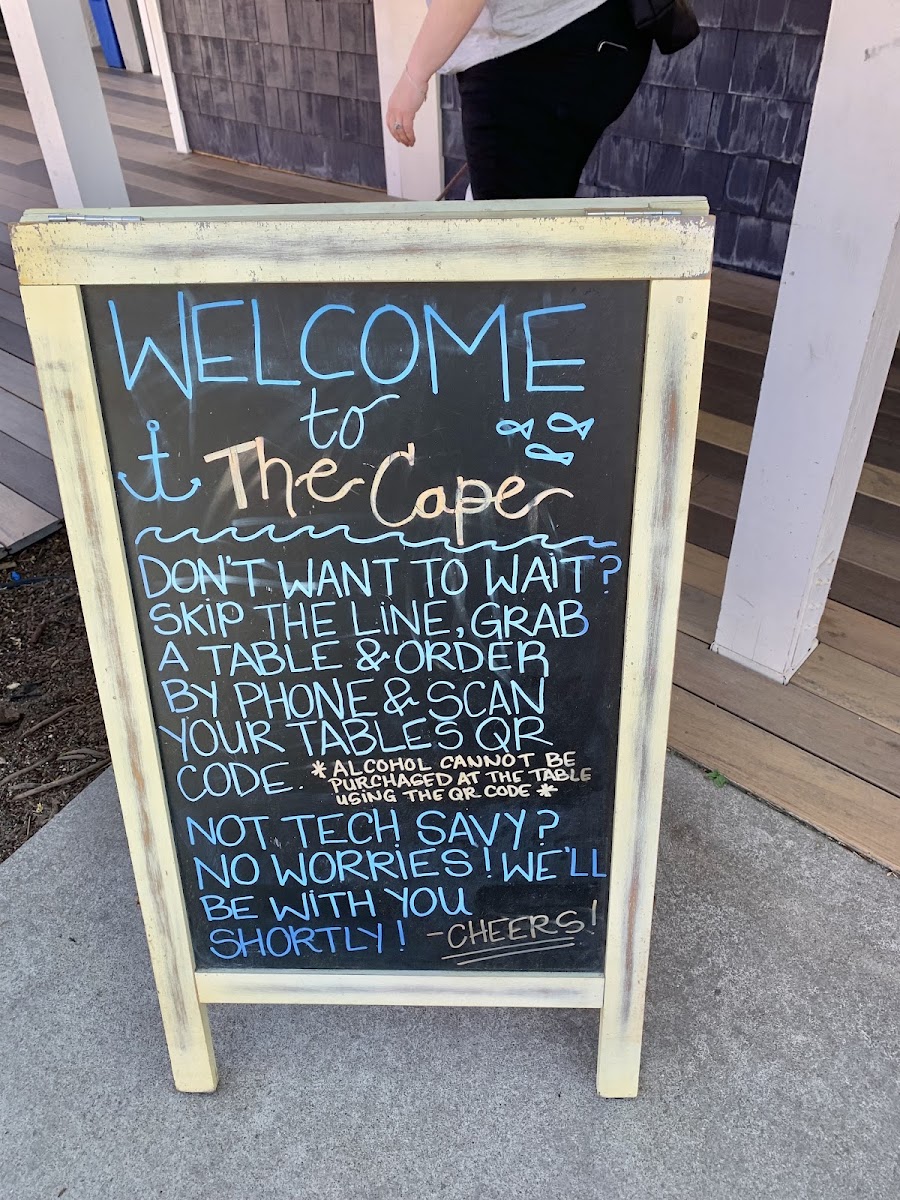 WELCOME
to
The Cape
DON'T WANT TO WAIT?
SKIP THE LINE, GRAB
A TABLE & ORDER
BY PHONE & SCAN
YOUR TABLES QR
CODE. *ALCOHOL CANNOT BE
PURCHASED AT THE TABLE
USING THE QR CODE*
NOT TECH SAVY?
NO WORRIES! WE'LL
BE WITH YOU
SHORTLY! -CHEERS!